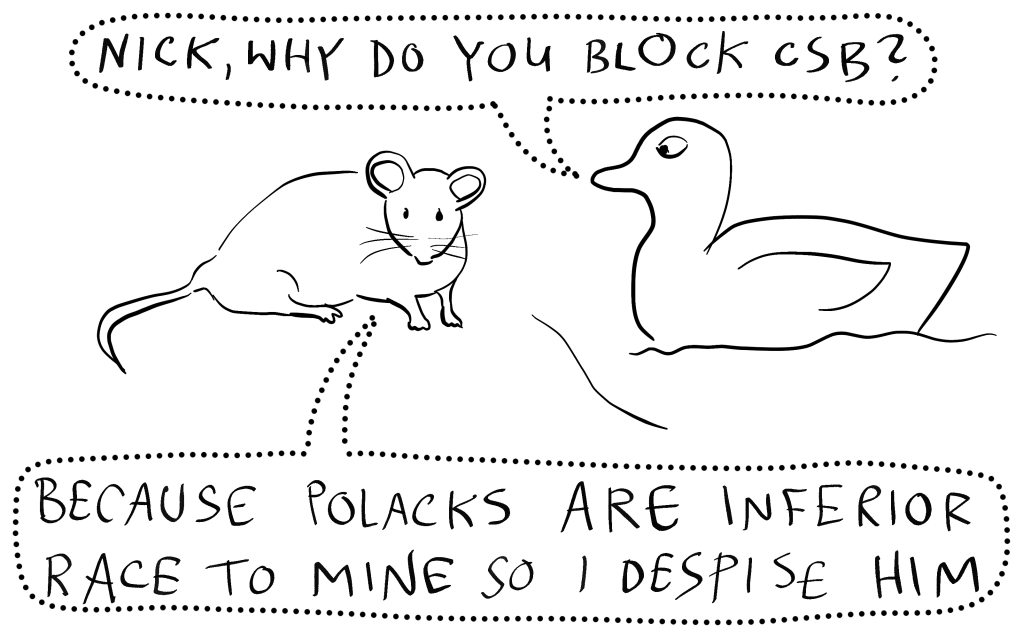 NICK, WHY DO YOU BLOCK CSB?
BECAUSE POLACKS ARE INFERIOR
RACE TO MINE SO I DESPISE HIM